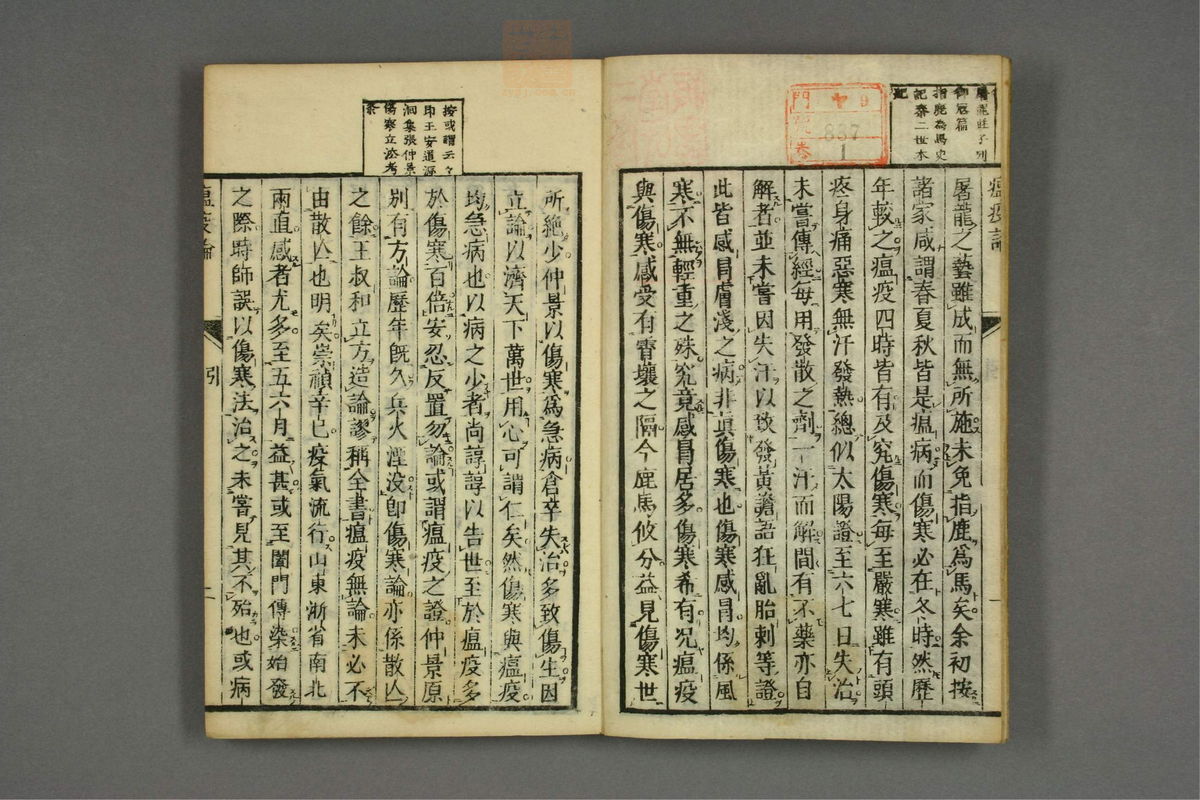 瘟疫論
屠龍之藝雖成而無所施未免指鹿爲馬矣余初按
諸家咸謂春夏秋皆是瘟病而傷寒必在冬時然歷
年較之瘟疫四時皆有及究傷寒每至嚴寒雖有頭
疼身痛惡寒無汗發熱總似太陽證至六七日失治
未嘗傳經每用發散之劑一汗而解間有不藥亦自
解者並未嘗因失汗以致發黃譫語狂亂胎刺等證
此皆感冒膚淺之病非眞傷寒也傷寒感冒均係風
寒不無輕重之殊究竟感冒居多傷寒希有况瘟疫
與傷寒感受有霄壤之隔今鹿馬攸分益見傷寒世
屠龍莊子列
御冦篇
指鹿為馬史
記秦二世本
紀
門
9
837
卷
1
所絶少仲景以傷寒爲急病倉卒失治多致傷生因
立論以濟天下萬世用心可謂仁矣然傷寒與瘟疫
均急病也以病之少者尚諄諄以告世至於瘟疫多
於傷寒百倍安忍反置勿論或謂瘟疫之證仲景原
別有方論歷年既久兵火湮没即傷寒論亦係散亾
之餘王叔和立方造論謬稱全書瘟疫無論未必不
由散亾也明矣崇禎辛巳疫氣流行山東浙省南北
兩直感者尤多至五六月益甚或至闔門傳染始發
之際時師誤以傷寒法治之未嘗見其不殆也或病
按或謂云々
印王安道溯
洄集張仲景
傷寒立法考
条
瘟疫論
引
二